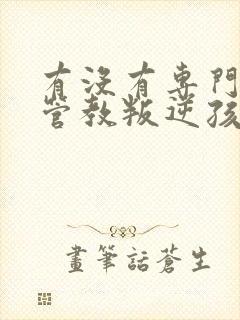 有沒有專門
管教叛逆孩
畫筆話蒼生